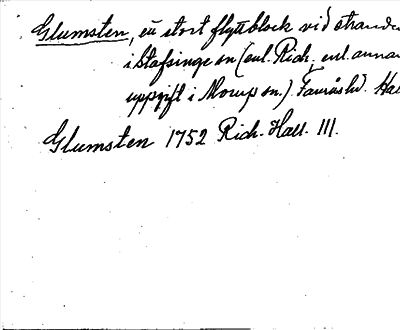 Glumsten, ett stort flyttblock vid strande
i Stafsinge sn (enl. Rich., enl. annan
uppgift i Morup sn.) Faurås hd. Hal
Glumsten 1752 Rich. Hall. III.